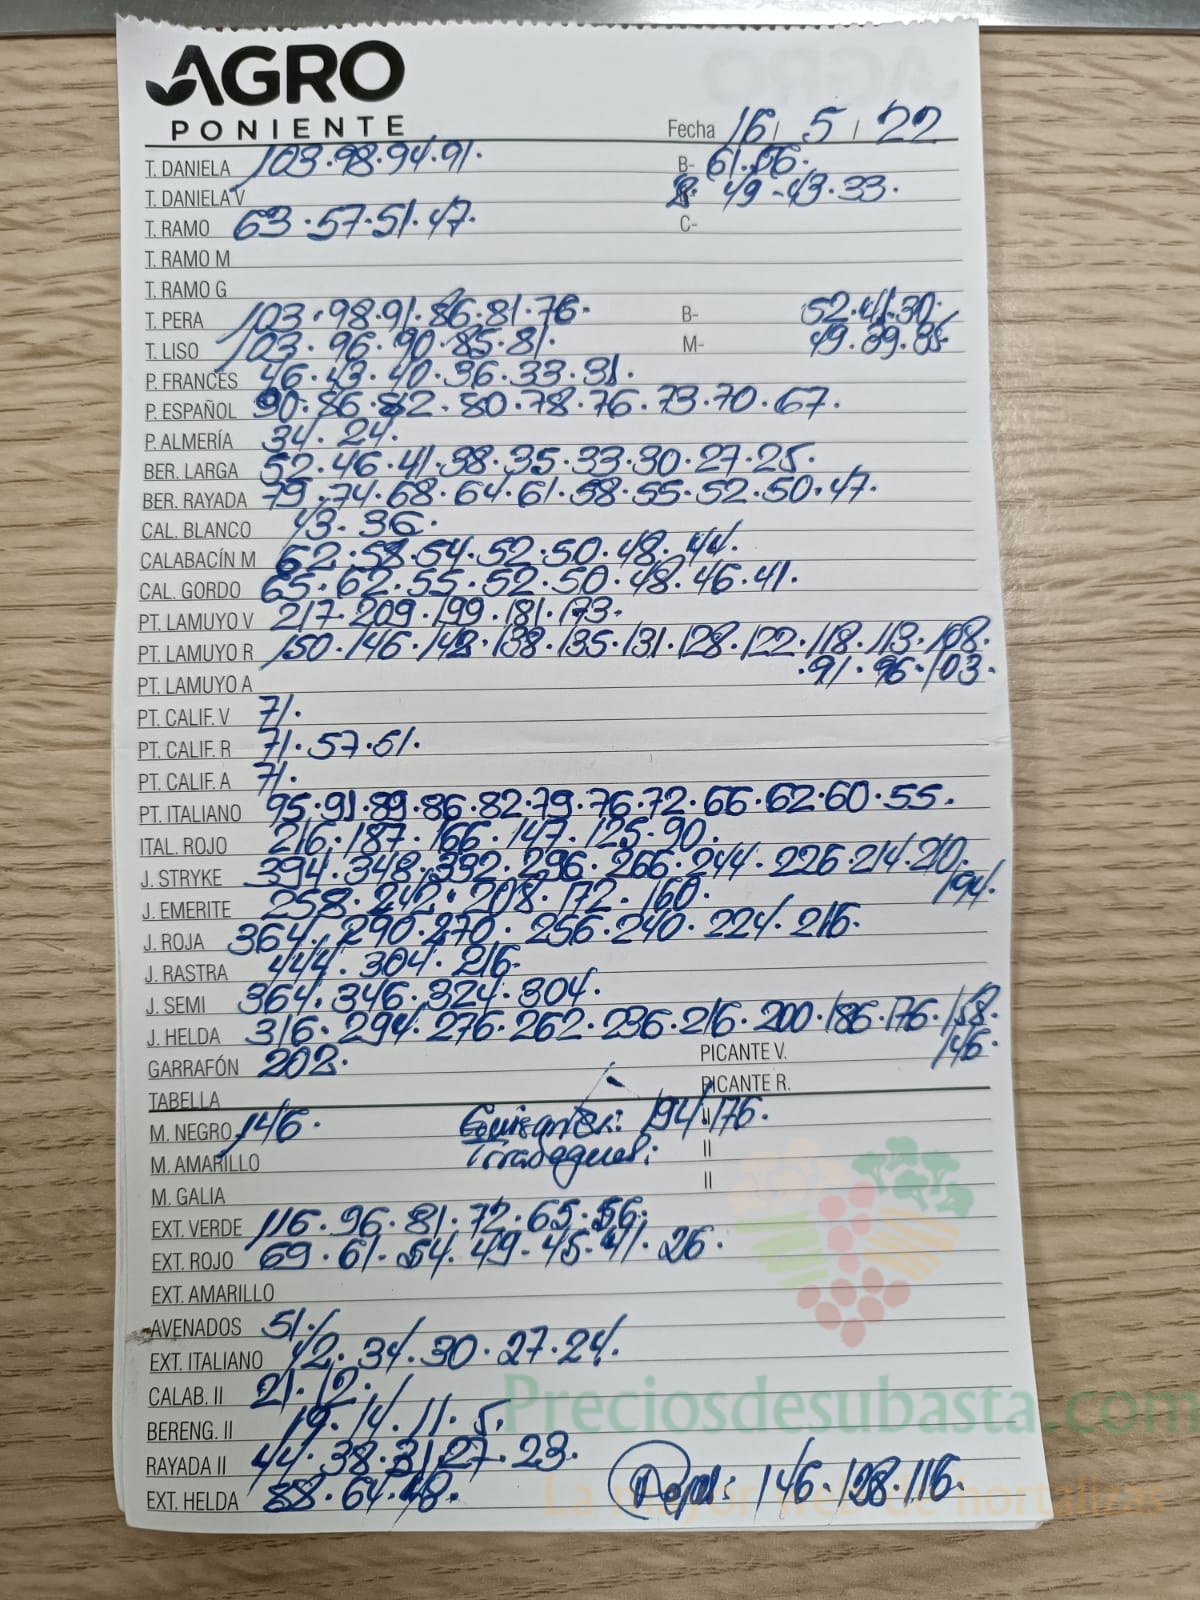 AGRO
PONIENTE
Fecha 16 / 5 / 22
T. DANIELA 103.98.94.91. B- 61.56.
T. DANIELA V 49-43.33.
T. RAMO 63.57.51.47. C-
T. RAMO M
T. RAMO G
T. PERA 103.98.91.86.81.76. B- 52.41.30.
T. LISO 103.96.90.85.81. M- 49.39.35
P. FRANCES 46.43.40.36.33.31.
P. ESPAÑOL 90.86.82.80.78.76.73.70.67.
P. ALMERÍA 34.24.
BER. LARGA 52.46.41.38.35.33.30.27.25.
BER. RAYADA 79.74.68.64.61.58.55.52.50.47.
CAL. BLANCO 43.36.
CALABACÍN M 62.58.54.52.50.48.44.
CAL. GORDO 65.62.55.52.50.48.46.41.
PT. LAMUYO V 217.209.199.181.173.
PT. LAMUYO R 150.146.142.138.135.131.128.122.118.113.108.
.91.96.103.
PT. LAMUYO A
PT. CALIF. V 71.
PT. CALIF. R 71.57.51.
PT. CALIF. A 71.
PT. ITALIANO 95.91.89.86.82.79.76.72.66.62.60.55.
ITAL. ROJO 216.187.166.147.125.90.
J. STRYKE 394.348.332.296.266.244.226.214.210.
194.
J. EMERITE 258.242.208.172.160.
J. ROJA 364.290.270.256.240.224.216.
J. RASTRA 444.304.216.
J. SEMI 364.346.324.304.
J. HELDA 316.294.276.262.236.216.200.186.176.158.
146.
GARRAFÓN 202. PICANTE V.
TABELLA PICANTE R.
M. NEGRO 146. Guisantes: 194.176. II
M. AMARILLO II
M. GALIA II
EXT. VERDE 116.96.81.72.65.56.
EXT. ROJO 69.61.54.49.45.41.26.
EXT. AMARILLO
AVENADOS 51.
EXT. ITALIANO 42.34.30.27.24.
CALAB. II 21.12.
BERENG. II 19.14.11.5.
RAYADA II 44.38.31.27.23.
EXT. HELDA 88.64.48. 146.128.116.
Preciosdesubasta.com